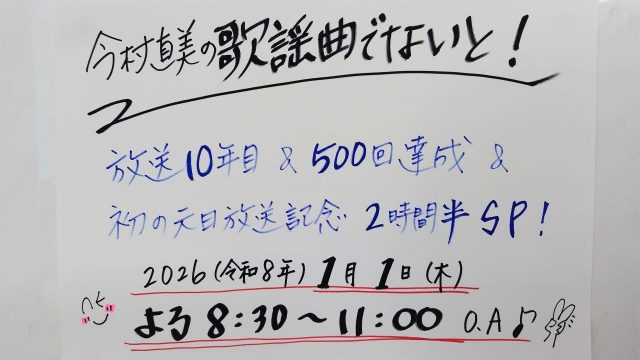 今村直美の歌謡曲でないと!
放送10年目 & 500回達成 &
初の元日放送記念 2時間半 SP!
2026(令和8年) 1月 1日(木)
よる 8:30~11:00 O.A♪